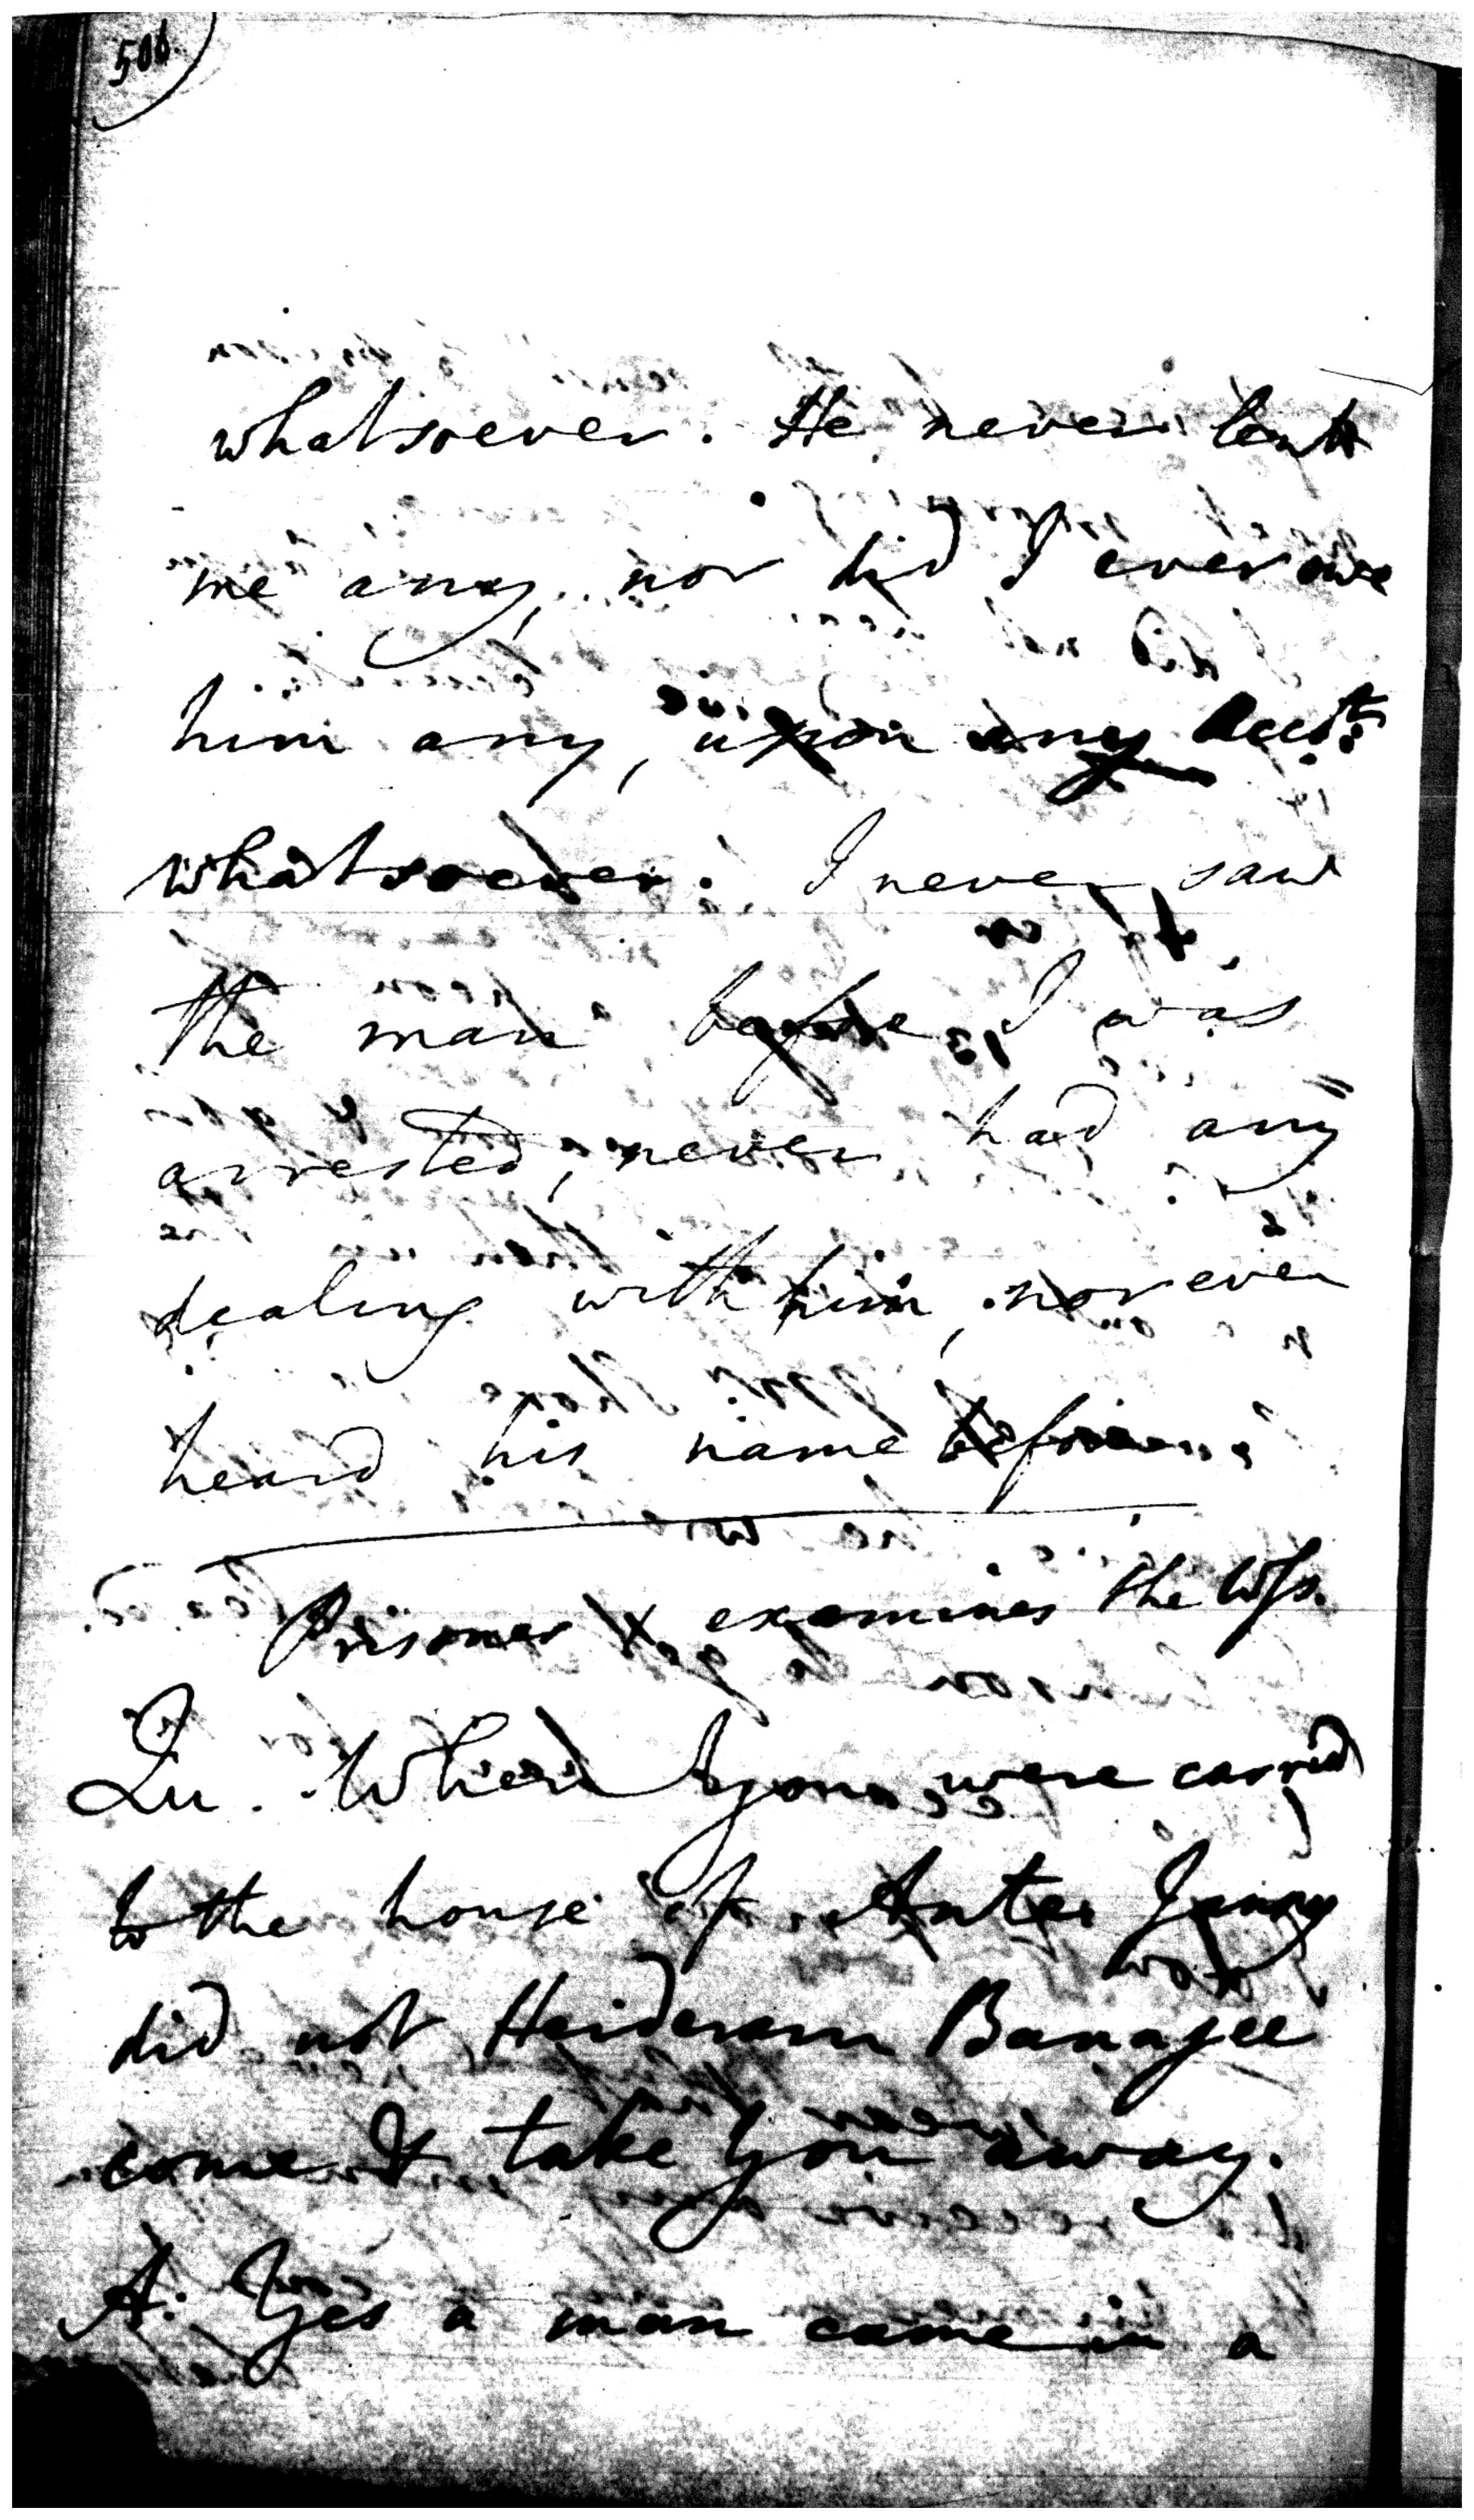 506
whatsoever. He never lent
me any, nor did I ever owe
him any, upon any Acct.
whatsoever. I never saw
the man before I was
arrested, never had any
dealing with him, nor even
heard his name before.
Prisoner X examines the Wss.
Qu. When you were carried
to the house of
did not Heideram Banajee
come & take you away.
A: Yes a man came in a